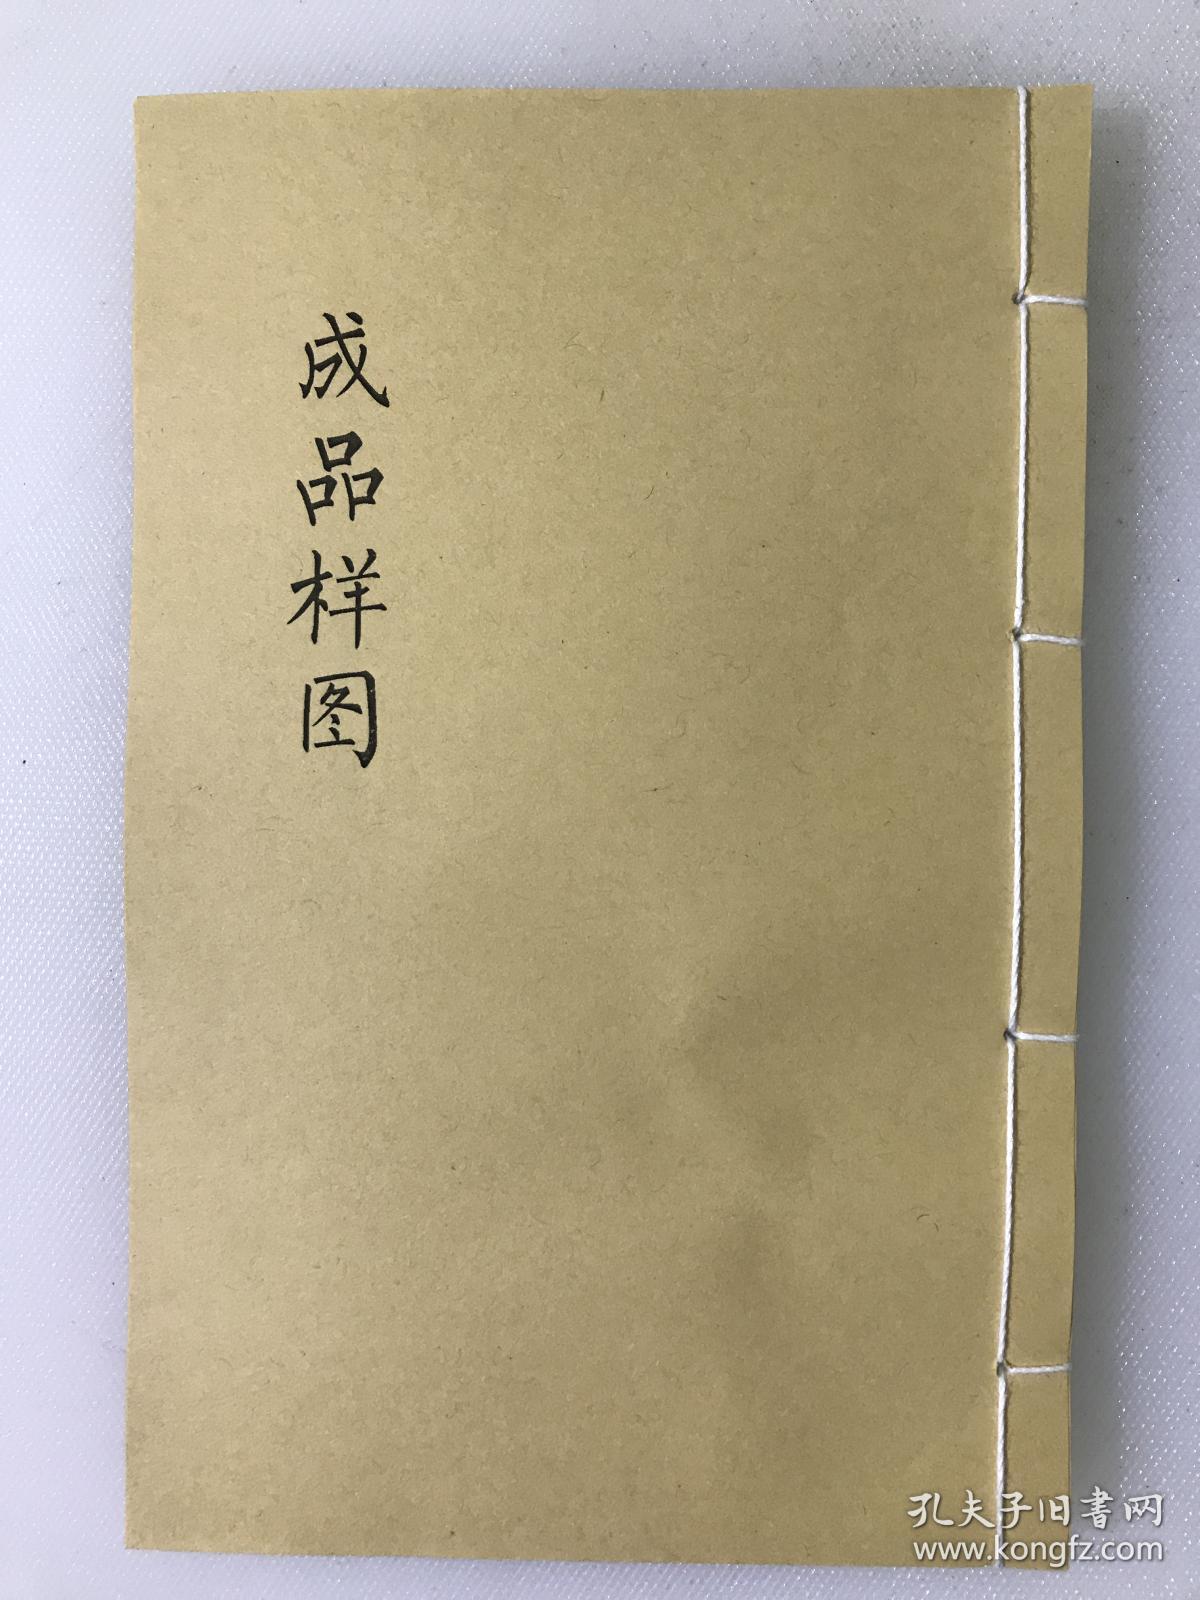 成品样图
孔夫子旧書网
www.kongfz.com